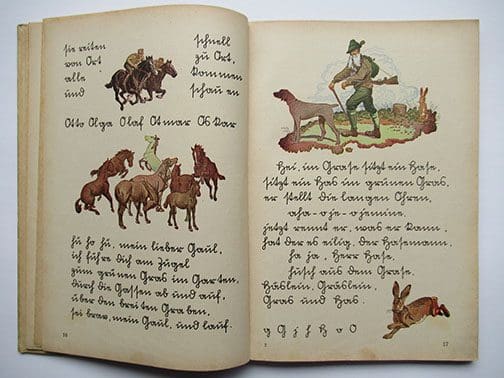 sie reiten schnell
von Ort zu Ort,
alle kommen
und schauen
Otto Olga Olaf Otmar Oskar
hü ho hü, mein lieber Gaul,
ich führe dich am Zügel
zum grünen Gras im Garten,
durch die Gassen ab und auf,
über den breiten Graben,
sei brav, mein Gaul, und lauf.
16
Hei, im Grase sitzt ein Hase,
sitzt ein Has im grünen Gras,
er stellt die langen Ohren,
aha-oje-ojemine,
jetzt rennt er, was er kann,
hat der es eilig, der Hasemann.
ha ja, Herr Hase,
husch aus dem Grase.
Häslein, Gräslein,
Gras und Has.
g G j
2 17